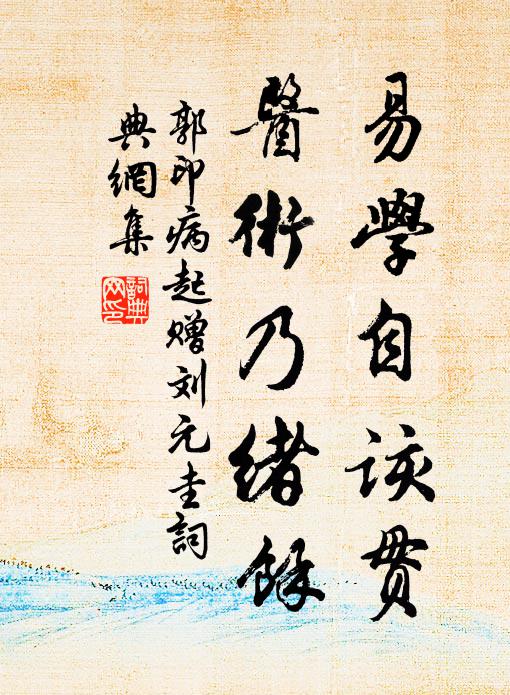 易學自該貫
醫術乃緒餘
郭印病起赠刘元圭詞
典網集
詞典网印